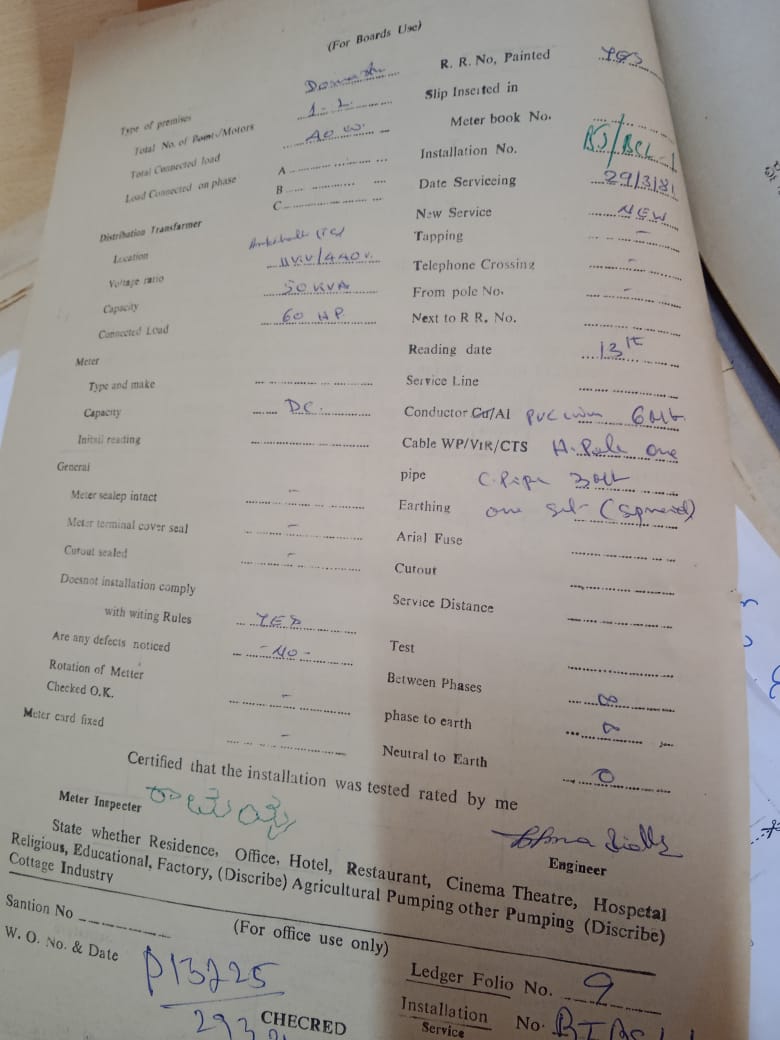 (For Boards Use)
Type of premises
Total No. of Points/Motors 1 - L
Total Connected load 40 W.
Load Connected on phase A
B
C
Distribution Transformer
Location
Voltage ratio 11KV/440V.
Capacity 50 KVA
Connected Load 60 HP
Meter
Type and make
Capacity DC.
Initail reading
General
Meter sealep intact -
Meter terminal cover seal -
Cutout sealed -
Doesnot installation comply
with witing Rules YES
Are any defects noticed - NO -
Rotation of Metter
Checked O.K. -
Meter card fixed -
R. R. No, Painted YES
Slip Inserted in
Meter book No.
Installation No. BJ/BCL-1
Date Serviceing 29/3/81
New Service NEW
Tapping -
Telephone Crossing -
From pole No. -
Next to R R. No.
Reading date 13th
Service Line
Conductor Cu/Al PVC 6Mt
Cable WP/VIR/CTS H. Pole one
pipe C. Pipe
Earthing one set
Arial Fuse
Cutout
Service Distance
Test
Between Phases ∞
phase to earth
Neutral to Earth 0
Certified that the installation was tested rated by me
Meter Inspecter
Engineer
State whether Residence, Office, Hotel, Restaurant, Cinema Theatre, Hospetal
Religious, Educational, Factory, (Discribe) Agricultural Pumping other Pumping (Discribe)
Cottage Industry
(For office use only)
Santion No
W. O. No. & Date P13225
CHECRED
Ledger Folio No. 9
Installation No.
Service